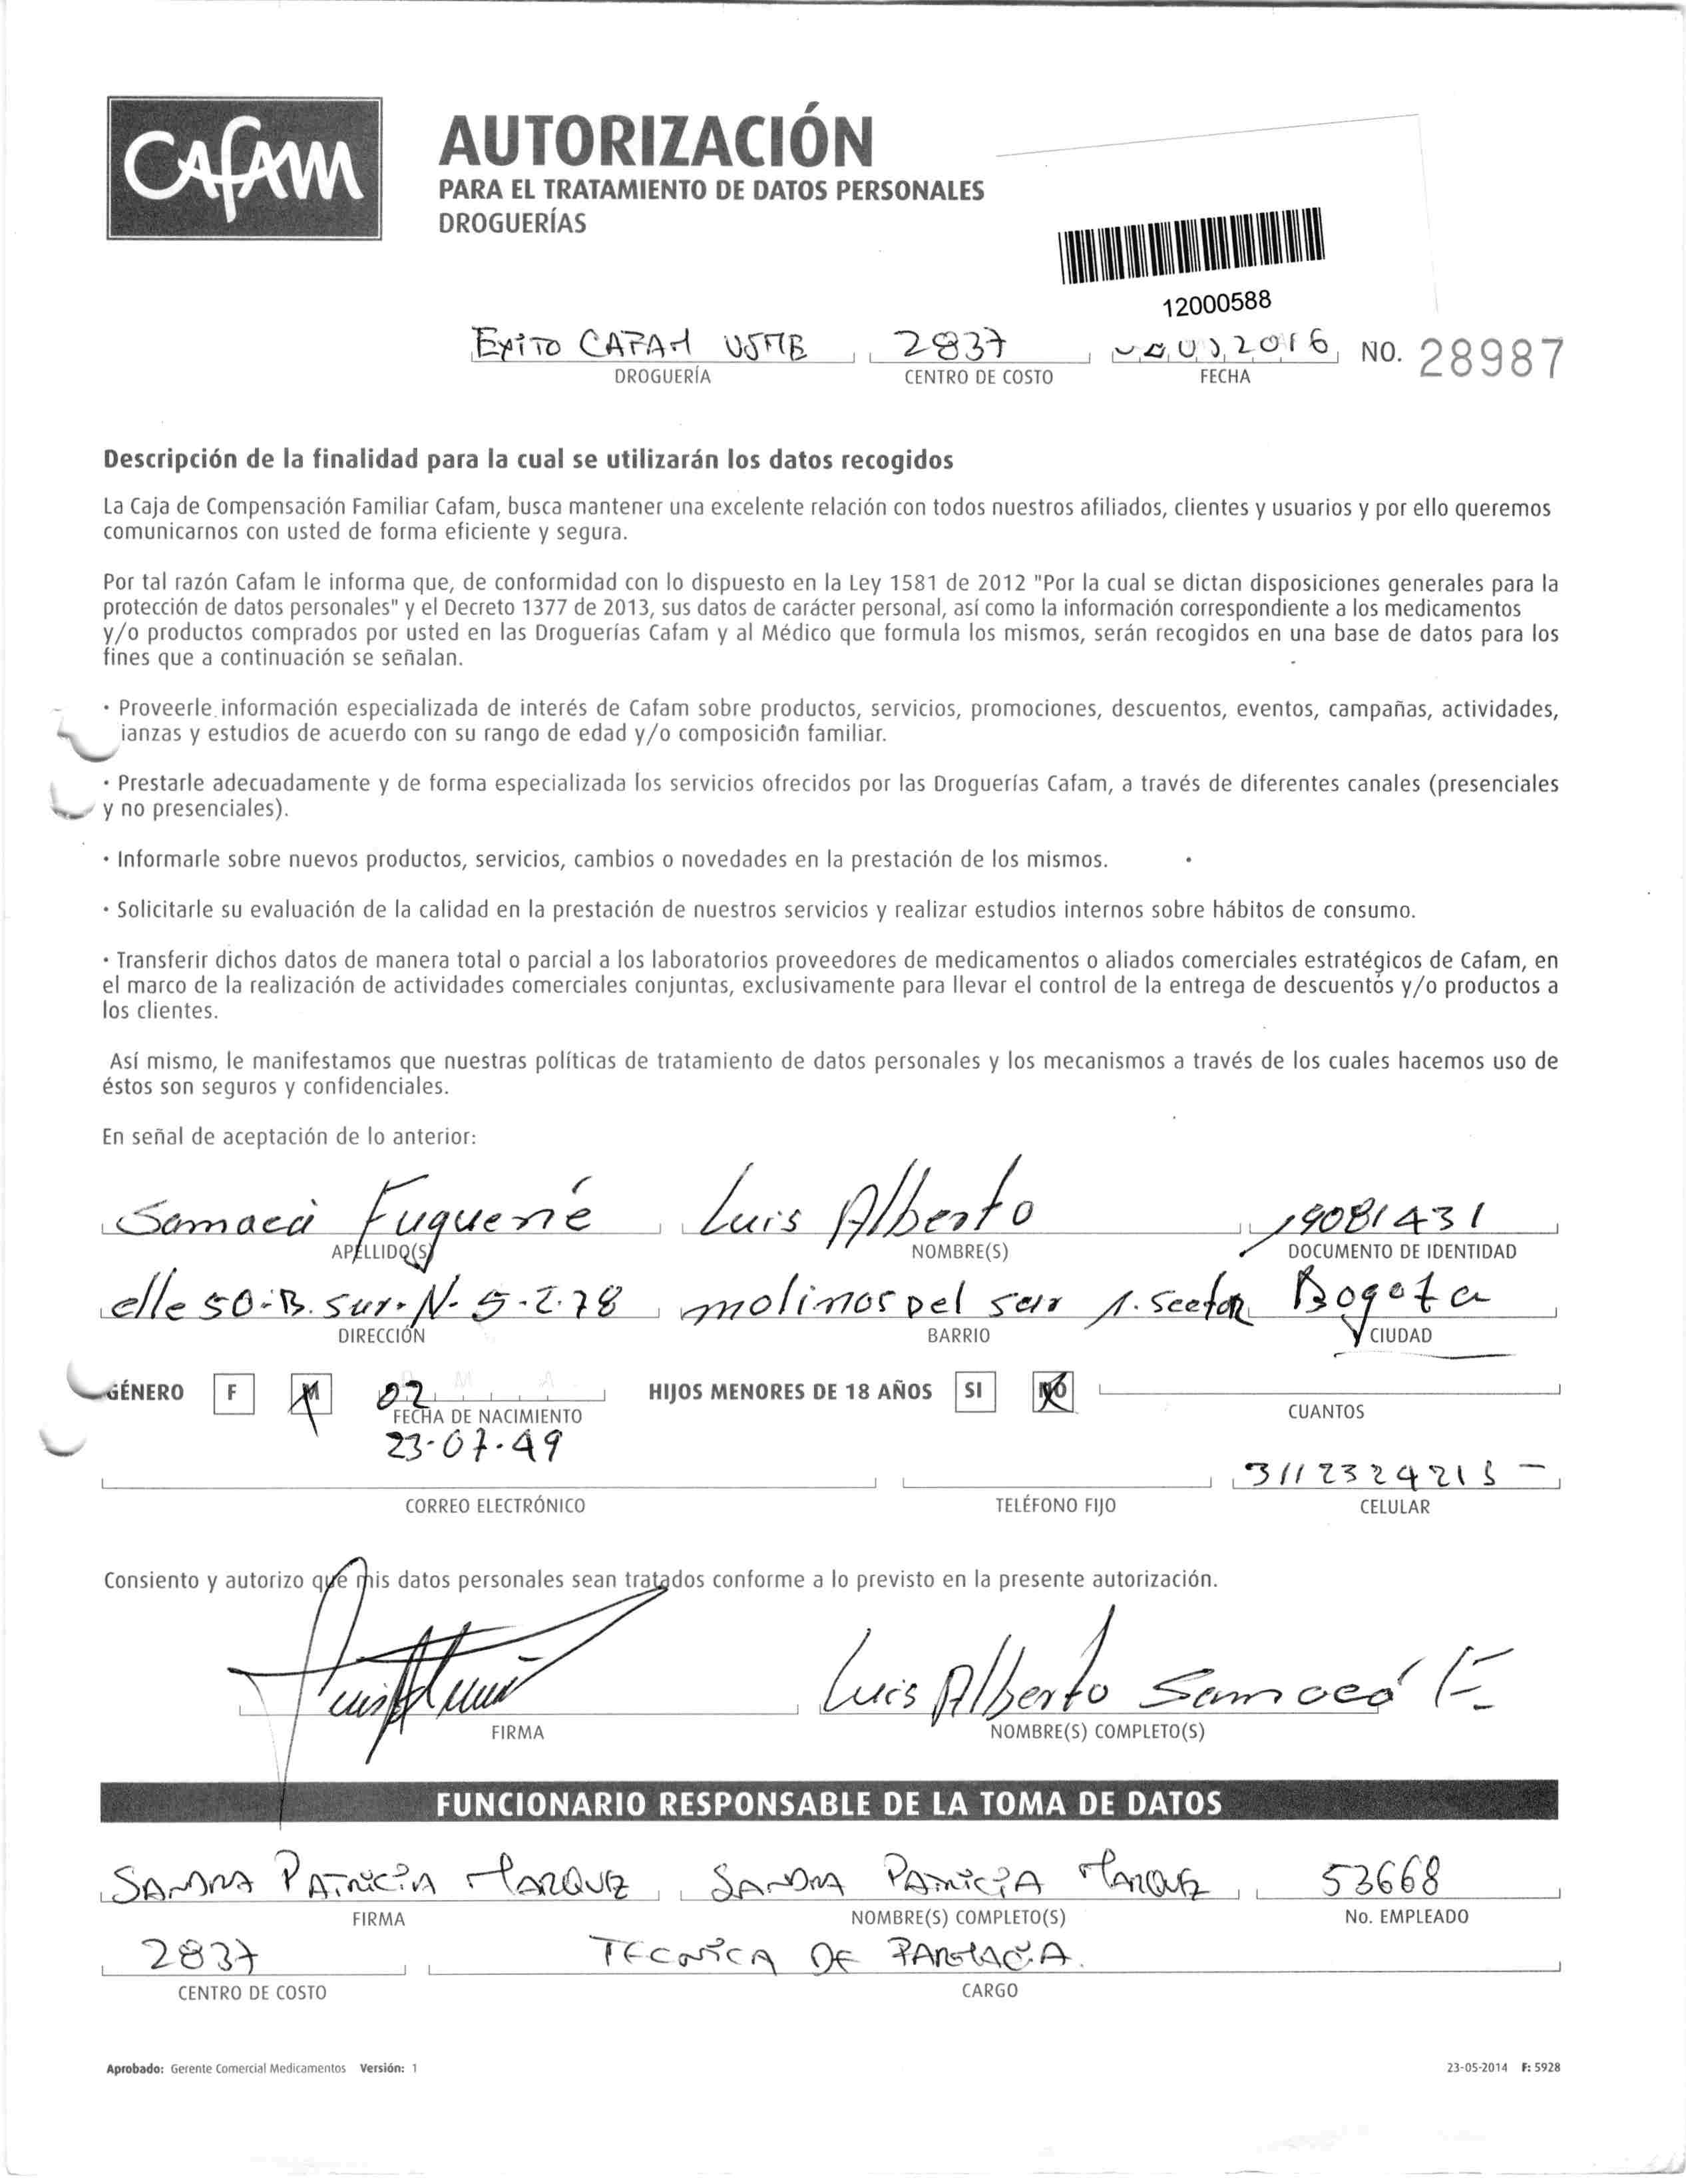 CAFAM
AUTORIZACIÓN
PARA EL TRATAMIENTO DE DATOS PERSONALES
DROGUERÍAS
12000588
Exito CAFAM USME 2837 2016 NO. 28987
DROGUERÍA CENTRO DE COSTO FECHA
Descripción de la finalidad para la cual se utilizarán los datos recogidos
La Caja de Compensación Familiar Cafam, busca mantener una excelente relación con todos nuestros afiliados, clientes y usuarios y por ello queremos
comunicarnos con usted de forma eficiente y segura.
Por tal razón Cafam le informa que, de conformidad con lo dispuesto en la Ley 1581 de 2012 "Por la cual se dictan disposiciones generales para la
protección de datos personales" y el Decreto 1377 de 2013, sus datos de carácter personal, así como la información correspondiente a los medicamentos
y/o productos comprados por usted en las Droguerías Cafam y al Médico que formula los mismos, serán recogidos en una base de datos para los
fines que a continuación se señalan.
· Proveerle información especializada de interés de Cafam sobre productos, servicios, promociones, descuentos, eventos, campañas, actividades,
ianzas y estudios de acuerdo con su rango de edad y/o composición familiar.
· Prestarle adecuadamente y de forma especializada los servicios ofrecidos por las Droguerías Cafam, a través de diferentes canales (presenciales
y no presenciales).
· Informarle sobre nuevos productos, servicios, cambios o novedades en la prestación de los mismos.
· Solicitarle su evaluación de la calidad en la prestación de nuestros servicios y realizar estudios internos sobre hábitos de consumo.
· Transferir dichos datos de manera total o parcial a los laboratorios proveedores de medicamentos o aliados comerciales estratégicos de Cafam, en
el marco de la realización de actividades comerciales conjuntas, exclusivamente para llevar el control de la entrega de descuentos y/o productos a
los clientes.
Así mismo, le manifestamos que nuestras políticas de tratamiento de datos personales y los mecanismos a través de los cuales hacemos uso de
éstos son seguros y confidenciales.
En señal de aceptación de lo anterior:
Samacá Fuquene Luis Alberto 19081431
APELLIDO(S) NOMBRE(S) DOCUMENTO DE IDENTIDAD
clle 50-B. sur. N- 5-2-78 molinos del sur 1. Sector Bogota
DIRECCIÓN BARRIO CIUDAD
GÉNERO F M 02 HIJOS MENORES DE 18 AÑOS SI NO
FECHA DE NACIMIENTO CUANTOS
23-07-49
3112324215 -
CORREO ELECTRÓNICO TELÉFONO FIJO CELULAR
Consiento y autorizo que mis datos personales sean tratados conforme a lo previsto en la presente autorización.
Luis Alberto Samacá F.
FIRMA NOMBRE(S) COMPLETO(S)
FUNCIONARIO RESPONSABLE DE LA TOMA DE DATOS
SANDRA PATRICIA MARQUEZ SANDRA PATRICIA MARQUEZ 53668
FIRMA NOMBRE(S) COMPLETO(S) No. EMPLEADO
2837 TECNICA DE FARMACIA.
CENTRO DE COSTO CARGO
Aprobado: Gerente Comercial Medicamentos Versión: 1 23-05-2014 F: 5928